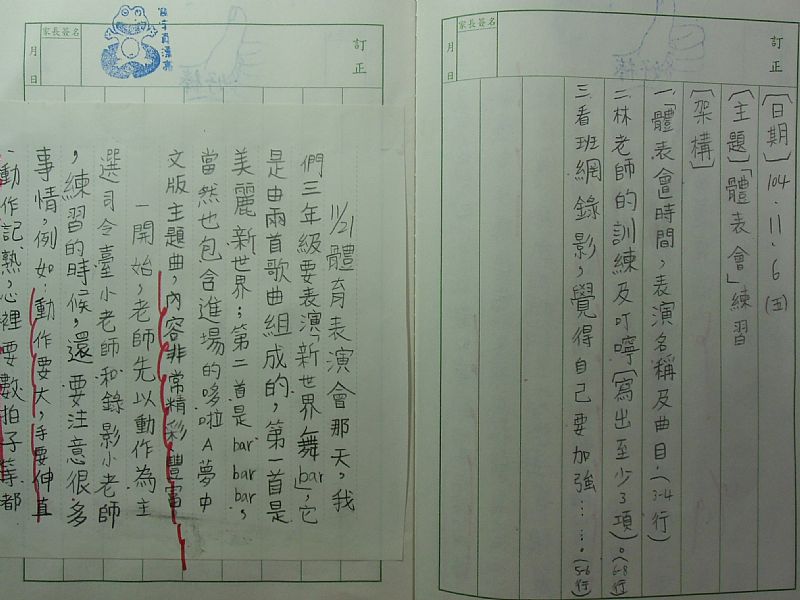 家長簽名
月
日
訂正
【日期】104.11.6(五)
【主題】「體表會」練習
【架構】
一.「體表會」時間,表演名稱及曲目.(3-4行)
二.林老師的訓練及叮嚀(寫出至少3項)。(6-8行)
三.看班網錄影,覺得自己要加強……。(5-6行)
家長簽名
月
日
訂正
11/21體育表演會那天,我
們三年級要表演「新世界舞bar」,它
是由兩首歌曲組成的,第一首是
美麗新世界;第二首是bar bar bar,
當然也包含進場的哆啦A夢中
文版主題曲,內容非常精彩、豐富
一開始,老師先以動作為主
選司令臺小老師和錄影小老師
,練習的時候,還要注意很多
事情,例如:動作要大,手要伸直
動作記熟,心裡要數拍子等都